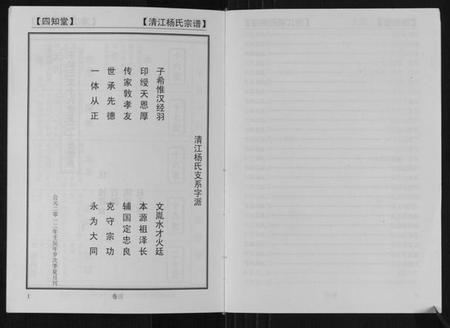 【四知堂】
【清江杨氏宗谱】
清江杨氏支系字派
子希惟汉经羽 文胤水才火廷
印绶天恩厚 本源祖泽长
传家敦孝友 辅国定忠良
世承先德 克守宗功
一体从正 永为大同
1